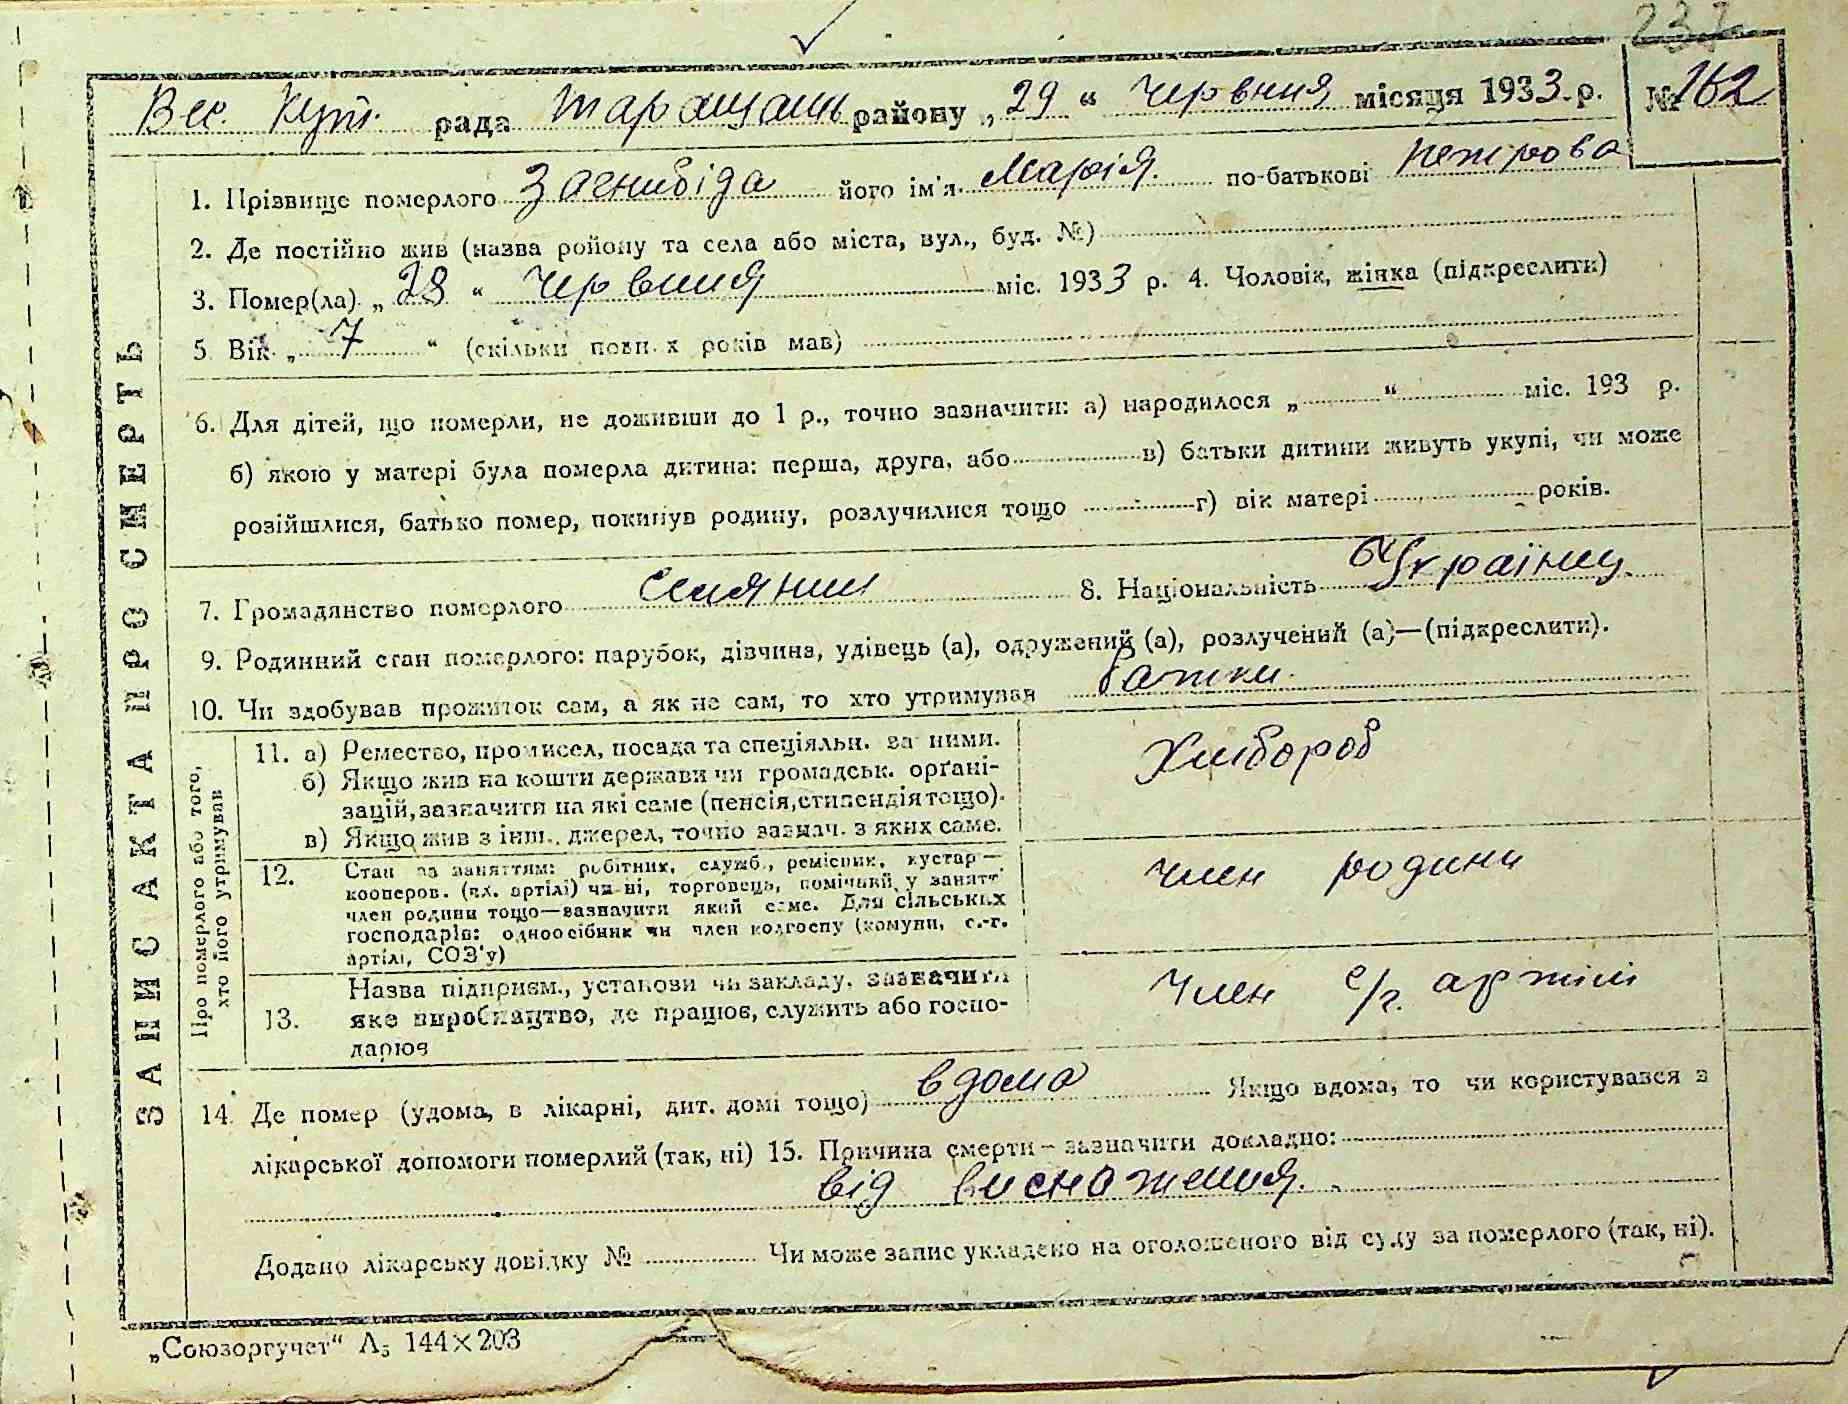 237
Вес. Кут. рада Таращань району „29“ Червня місяця 1933 р. № 162
1. Прізвище померлого Загнибіда його ім'я Марія по-батькові Петрова
2. Де постійно жив (назва району та села або міста, вул., буд. №)
3. Помер(ла) „28“ Червня міс. 1933 р. 4. Чоловік, жінка (підкреслити)
5 Вік „7“ (скільки повн. х років мав)
6. Для дітей, що померли, не доживши до 1 р., точно зазначити: а) народилося „ “ міс. 193 р.
б) якою у матері була померла дитина: перша, друга, або в) батьки дитини живуть укупі, чи може
розійшлися, батько помер, покинув родину, розлучилися тощо г) вік матері років.
7. Громадянство померлого селянин 8. Національність Українц.
9. Родинний стан померлого: парубок, дівчина, удівець (а), одружений (а), розлучений (а)—(підкреслити).
10. Чи здобував прожиток сам, а як не сам, то хто утримував батки.
ЗАПИС АКТА ПРО СМЕРТЬ
Про померлого або того,
хто його утримував
11. а) Ремество, промисел, посада та спеціяльн. за ними.
б) Якщо жив на кошти держави чи громадськ. орґані-
зацій, зазначити на які саме (пенсія, стипендія тощо).
в) Якщо жив з інш. джерел, точно зазнач. з яких саме.
Хлібороб
12. Стан за заняттям: робітник, служб., ремісник, кустар—
кооперов. (чл. артілі) чи ні, торговець, помічний у занятт.
член родини тощо—зазначити який саме. Для сільських
господарів: одноосібник чи член колгоспу (комуни, с.-г.
артілі, СОЗ'у)
член родини
13. Назва підприєм., установи чи закладу, зазначити
яке виробництво, де працює, служить або госпо-
дарює
Член с/г. артілі
14. Де помер (удома, в лікарні, дит. домі тощо) вдома Якщо вдома, то чи користувався з
лікарської допомоги померлий (так, ні) 15. Причина смерти – зазначити докладно:
від виснаження.
Додано лікарську довідку № Чи може запис укладено на оголошеного від суду за померлого (так, ні).
„Союзоргучет“ А₅ 144×203